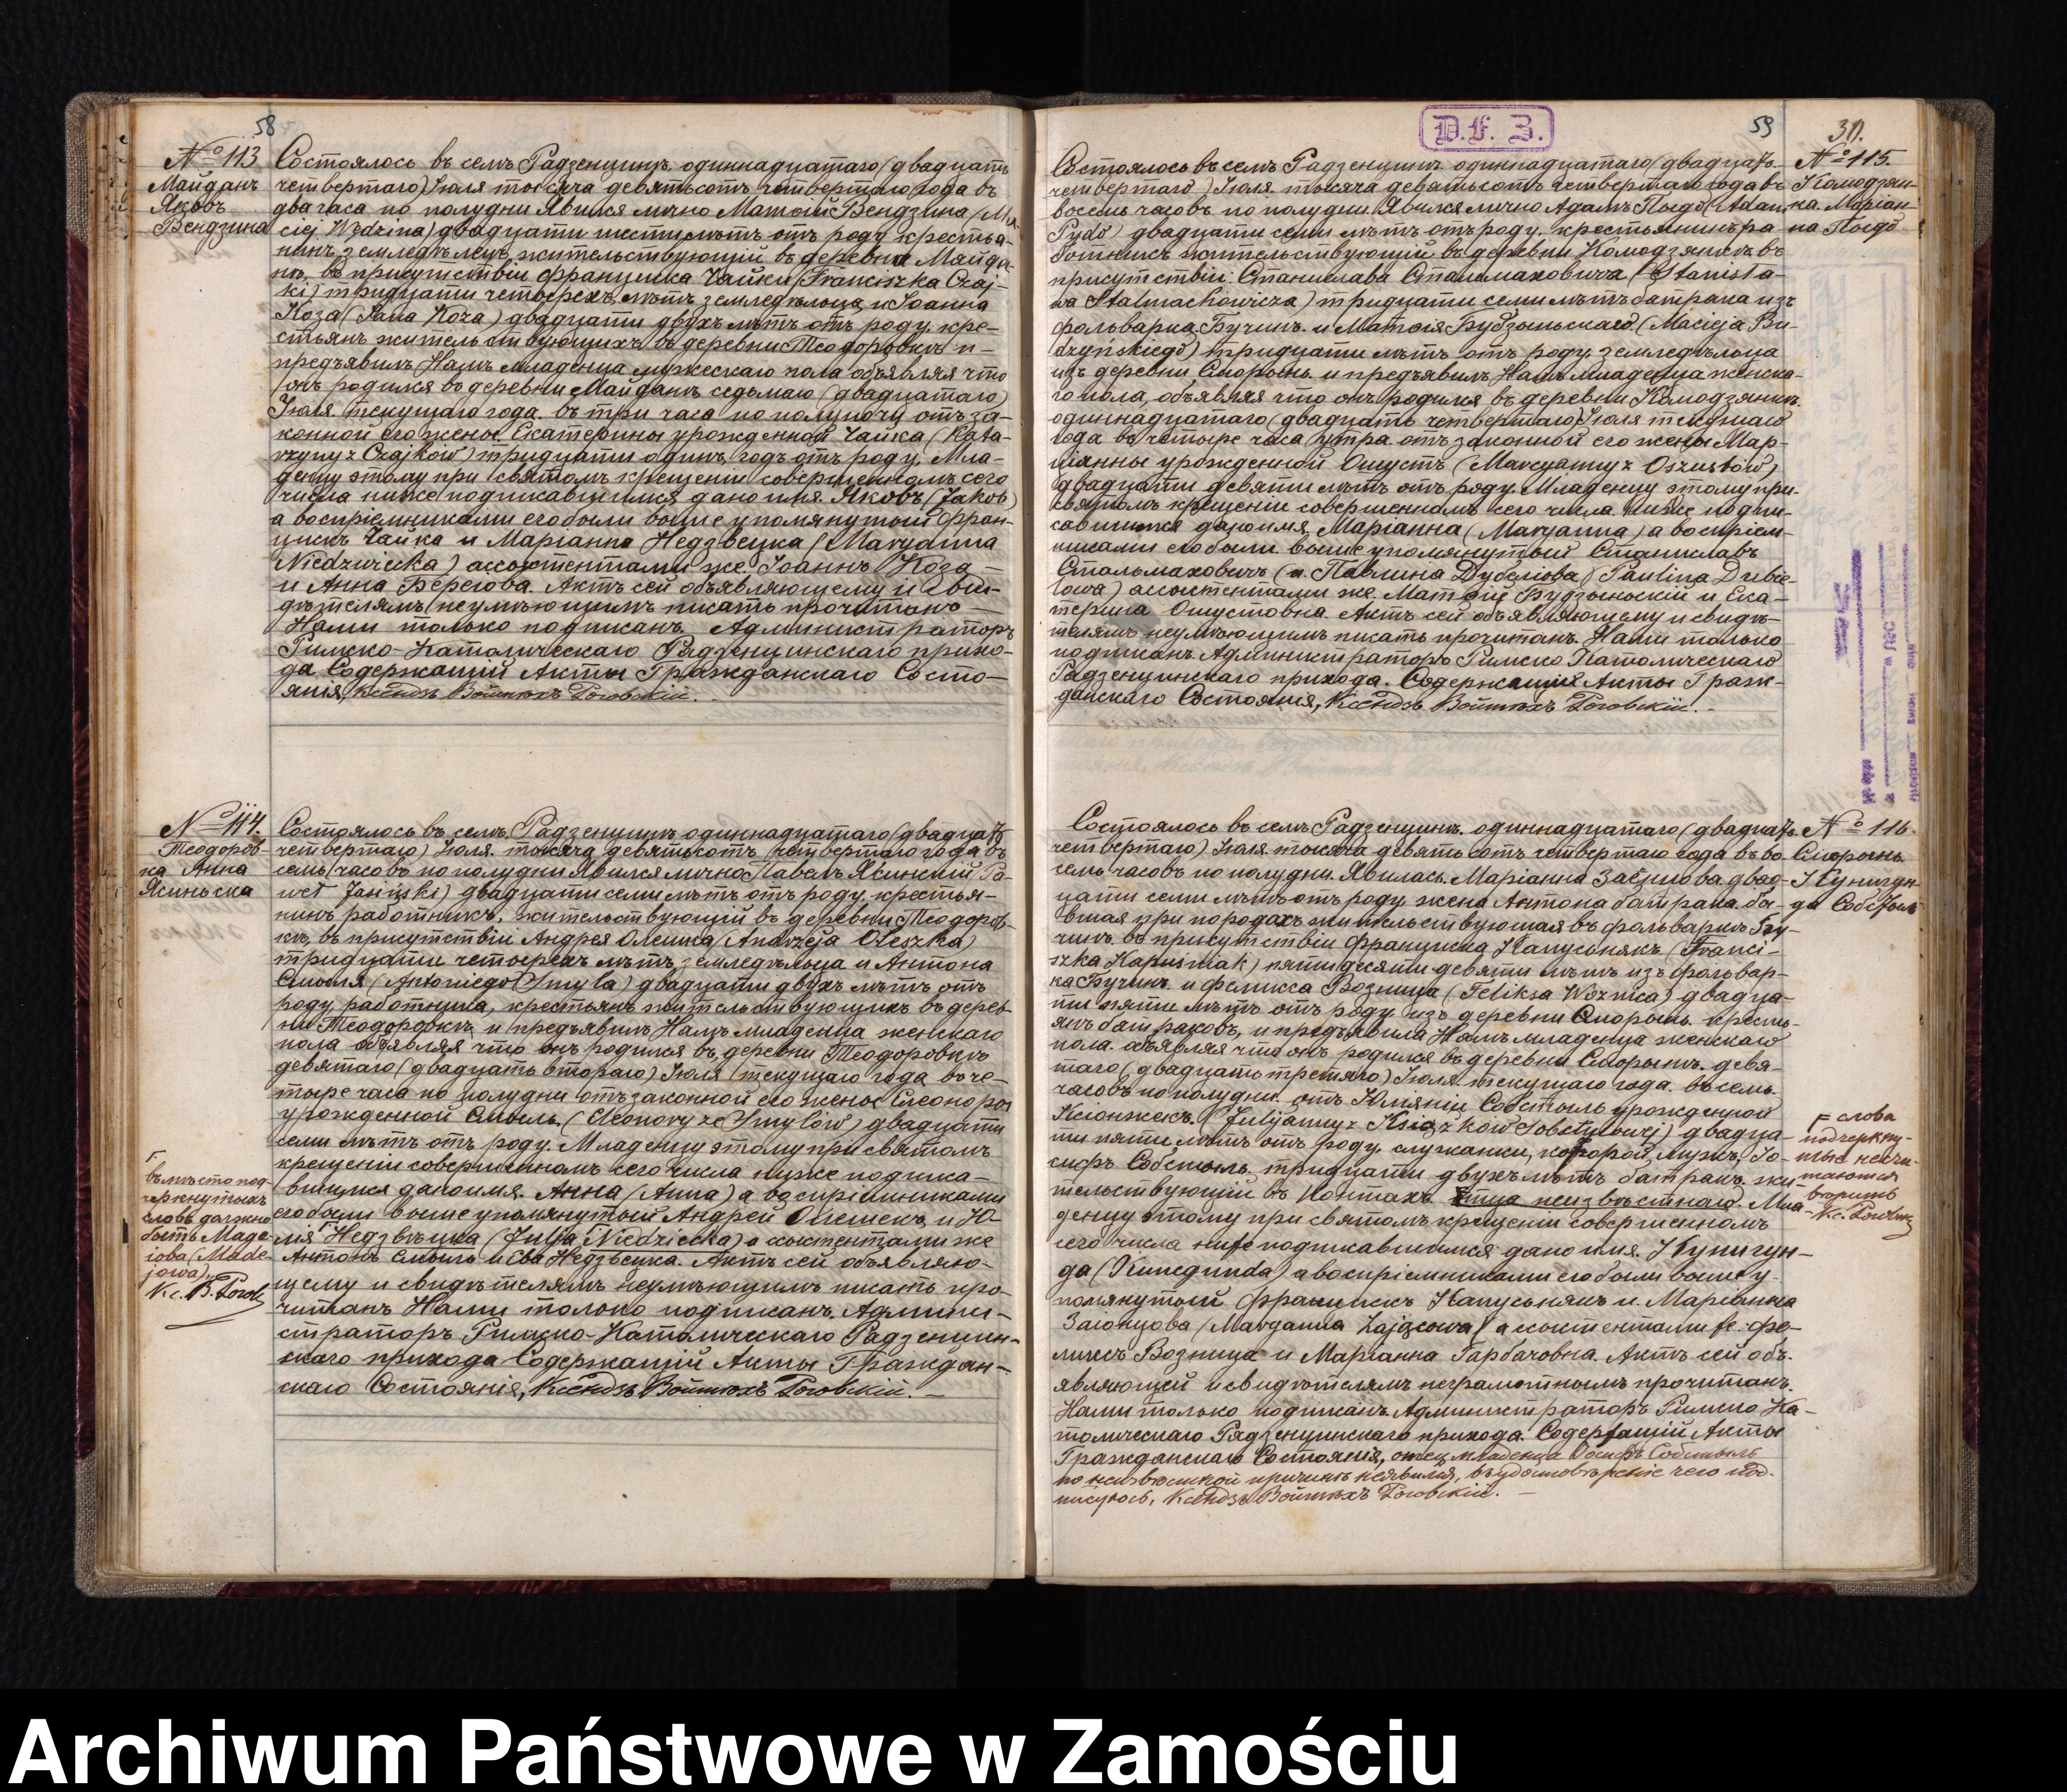 58
№ 113
Майданъ
Яковъ
Вендзина
Состоялось въ селѣ Радзенцинѣ одиннадцатаго (двадцать
четвертаго) Іюля тысяча девятьсотъ четвертаго года въ
два часа по полудни Явился лично Матѳій Вендзина (Ma
ciej Wędzina) двадцати шести лѣтъ отъ роду крестья-
нинъ земледѣлецъ, жительствующій въ деревни Майда-
нѣ, въ присутствіи Францишка Чайки (Franciszka Czaj-
ki) тридцати четырехъ лѣтъ земледѣльца и Іоанна
Коза (Jana Koza) двадцати двухъ лѣтъ отъ роду кре-
стьянъ жительствующихъ въ деревни Теодоровкѣ и
предъявилъ Намъ младенца мужескаго пола объявляя что
онъ родился въ деревни Майданѣ седьмаго (двадцатаго)
Іюля текущаго года въ три часа по полуночи отъ за-
конной его жены Екатерины урожденной Чайка (Kata-
rzyny z Czajków) тридцати одинъ годъ отъ роду. Мла-
денцу этому при святомъ крещеніи совершенномъ сего
числа ниже подписавшимся дано имя Яковъ (Jakób)
а воспріемниками его были выше упомянутый Фран-
цискъ Чайка и Маріанна Недзвецка (Maryanna
Niedzwiecka) ассистентами же Іоаннъ Коза
и Анна Берегова. Актъ сей объявляющему и сви-
дѣтелямъ неумѣющимъ писать прочитанъ
Нами только подписанъ. Администраторъ
Римско-Католическаго Радзенцинскаго прихо-
да Содержащій Акты Гражданскаго Состо-
янія, Ксендзъ Войтѣхъ Роговскій.
№ 114.
Теодоров-
ка Анна
Ясиньска
Состоялось въ селѣ Радзенцинѣ одиннадцатаго (двадцать
четвертаго) Іюля тысяча девятьсотъ четвертаго года въ
семь часовъ по полудни Явился лично Павелъ Ясинскій (Pa-
weł Jasiński) двадцати семи лѣтъ отъ роду крестья-
нинъ работникъ, жительствующій въ деревни Теодоров-
кѣ, въ присутствіи Андрея Олешка (Andrzeja Oleszka)
тридцати четырехъ лѣтъ земледѣльца и Антона
Смыля (Antoniego Smyla) двадцати двухъ лѣтъ отъ
роду работника, крестьянъ жительствующихъ въ дерев
ни Теодоровкѣ и предъявилъ Намъ младенца женскаго
пола объявляя что онъ родился въ деревни Теодоровкѣ
девятаго (двадцать втораго) Іюля текущаго года въ че-
тыре часа по полудни отъ законной его жены Елеоноры
урожденной Смыль (Eleonory ze Smylów) двадцати
семи лѣтъ отъ роду. Младенцу этому при святомъ
крещеніи совершенномъ сего числа ниже подписа-
вшимся дано имя Анна (Anna) а воспріемниками
его были выше упомянутый Андрей Олешекъ и Ю-
лія Недзвѣцка (Julja Niedzwiecka) ассистентами же
Антонъ Смыль и Ева Недзвѣцка. Актъ сей объявляю-
щему и свидѣтелямъ неумѣющимъ писать про-
читанъ Нами только подписанъ. Админи-
страторъ Римско-Католическаго Радзенцин-
скаго прихода Содержащій Акты Граждан-
скаго Состоянія, Ксендзъ Войтѣхъ Роговскій.
вмѣсто под-
черкнутыхъ
словъ должно
быть Маде-
іова (Made-
jowa)
Кс. В. Рогов
D.F. 3.
59
30.
№ 115.
Комодзян-
ка Маріан-
на Пыдо
Состоялось въ селѣ Радзенцинѣ одиннадцатаго (двадцать
четвертаго) Іюля тысяча девятьсотъ четвертаго года въ
восемь часовъ по полудни Явился лично Адамъ Пыдо (Adam
Pydo) двадцати семи лѣтъ отъ роду крестьянинъ ра-
ботникъ жительствующій въ деревни Комодзянкѣ въ
присутствіи Станислава Стальмаховича (Stanisla-
wa Stalmachowicza) тридцати семи лѣтъ батрака изъ
фольварка Бучинъ и Матѳія Будзыньскаго (Macieja Bu-
dzyńskiego) тридцати лѣтъ отъ роду земледѣльца
изъ деревни Сморынь и предъявилъ Намъ младенца женска-
го пола, объявляя что онъ родился въ деревни Комодзянкѣ
одиннадцатаго (двадцать четвертаго) Іюля текущаго
года въ четыре часа утра отъ законной его жены Мар-
іанны урожденной Ошустъ (Maryanny z Oszustów)
двадцати девяти лѣтъ отъ роду. Младенцу этому при
святомъ крещеніи совершенномъ сего числа ниже подпи-
савшимся дано имя Маріанна (Maryanna) а воспріем-
никами его были выше упомянутый Станиславъ
Стальмаховичъ и Павлина Дубеліова (Paulina Dubie-
lowa) ассистентами же Матѳій Будзыньскій и Ека-
терина Ошустовна. Актъ сей объявляющему и свидѣ-
телямъ неумѣющимъ писать прочитанъ Нами только
подписанъ Администраторъ Римско Католическаго
Радзенцинскаго прихода. Содержащій Акты Граж-
данскаго Состоянія, Ксендзъ Войтѣхъ Роговскій.
№ 116.
Сморынь
Кунигун-
да Собстыль
Состоялось въ селѣ Радзенцинѣ одиннадцатаго (двадцать
четвертаго) Іюля тысяча девятьсотъ четвертаго года въ во
семь часовъ по полудни. Явилась Маріанна двад-
цати семи лѣтъ отъ роду жена Антона батрака, бы-
вшая при породахъ жительствующая въ фольваркѣ Бу-
чинъ въ присутствіи Францишка Капусьнякъ (Franci-
szka Kapuśniak) пятидесяти девяти лѣтъ изъ фольвар-
ка Бучинъ и Феликса Возница (Feliksa Woznica) двадца-
ти пяти лѣтъ отъ роду изъ деревни Сморынь кресть-
янъ батраковъ, и предъявила Намъ младенца женскаго
пола объявляя что онъ родился въ деревни Сморынь девя-
таго (двадцать третьяго) Іюля текущаго года въ семь
часовъ по полудни отъ Юліянни Собстыль урожденной
Ксіонжекъ (Julijanny z Książków Sobstylowej) двадца-
ти пяти лѣтъ отъ роду служанки, которой мужъ, Іо-
сифъ Собстыль тридцати двухъ лѣтъ батракъ жи-
тельствующій въ отца неизвѣстнаго. Мла-
денцу этому при святомъ крещеніи совершенномъ
сего числа ниже подписавшимся дано имя Кунигун-
да (Kunegunda) а воспріемниками его были выше у-
помянутый Францискъ Капусьнякъ и Маріанна
Заіонцова (Maryanna Zającowa) ассистентами же Фе-
ликсъ Возница и Маріанна Гарбачовна. Актъ сей объ-
являющей и свидѣтелямъ неграмотнымъ прочитанъ
Нами только подписанъ. Администраторъ Римско Ка-
толическаго Радзенцинскаго прихода. Содержащій Акты
Гражданскаго Состоянія, отец младенца Осифъ Собстыль
по неизвѣстной причинѣ неявился, въ удостовѣреніе чего под-
писуюсь, Ксендзъ Войтѣхъ Роговскій.
слова
подчеркну-
тые нечи-
таются
Archiwum Państwowe w Zamościu